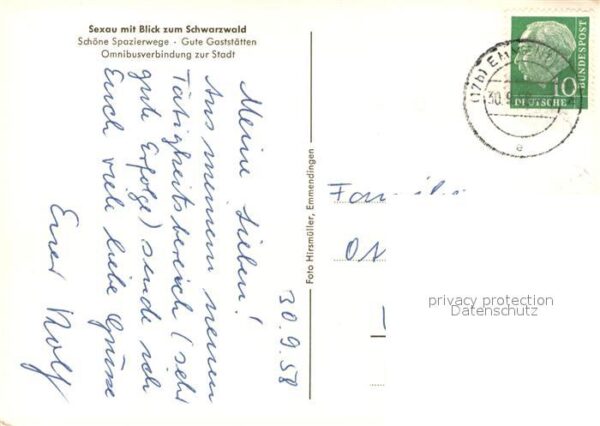 Sexau mit Blick zum Schwarzwald
Schöne Spazierwege · Gute Gaststätten
Omnibusverbindung zur Stadt
30.9.58
Meine Lieben!
Aus meinem neuen
Tätigkeitsbereich (sehr
gute Erfolge) sende ich
Euch viele liebe Grüsse
Euer Rolf
Foto Hirsmüller, Emmendingen
(17b) EMMENDI
30.9
e
10
DEUTSCHE
BUNDESPOST
Familie
privacy protection
Datenschutz